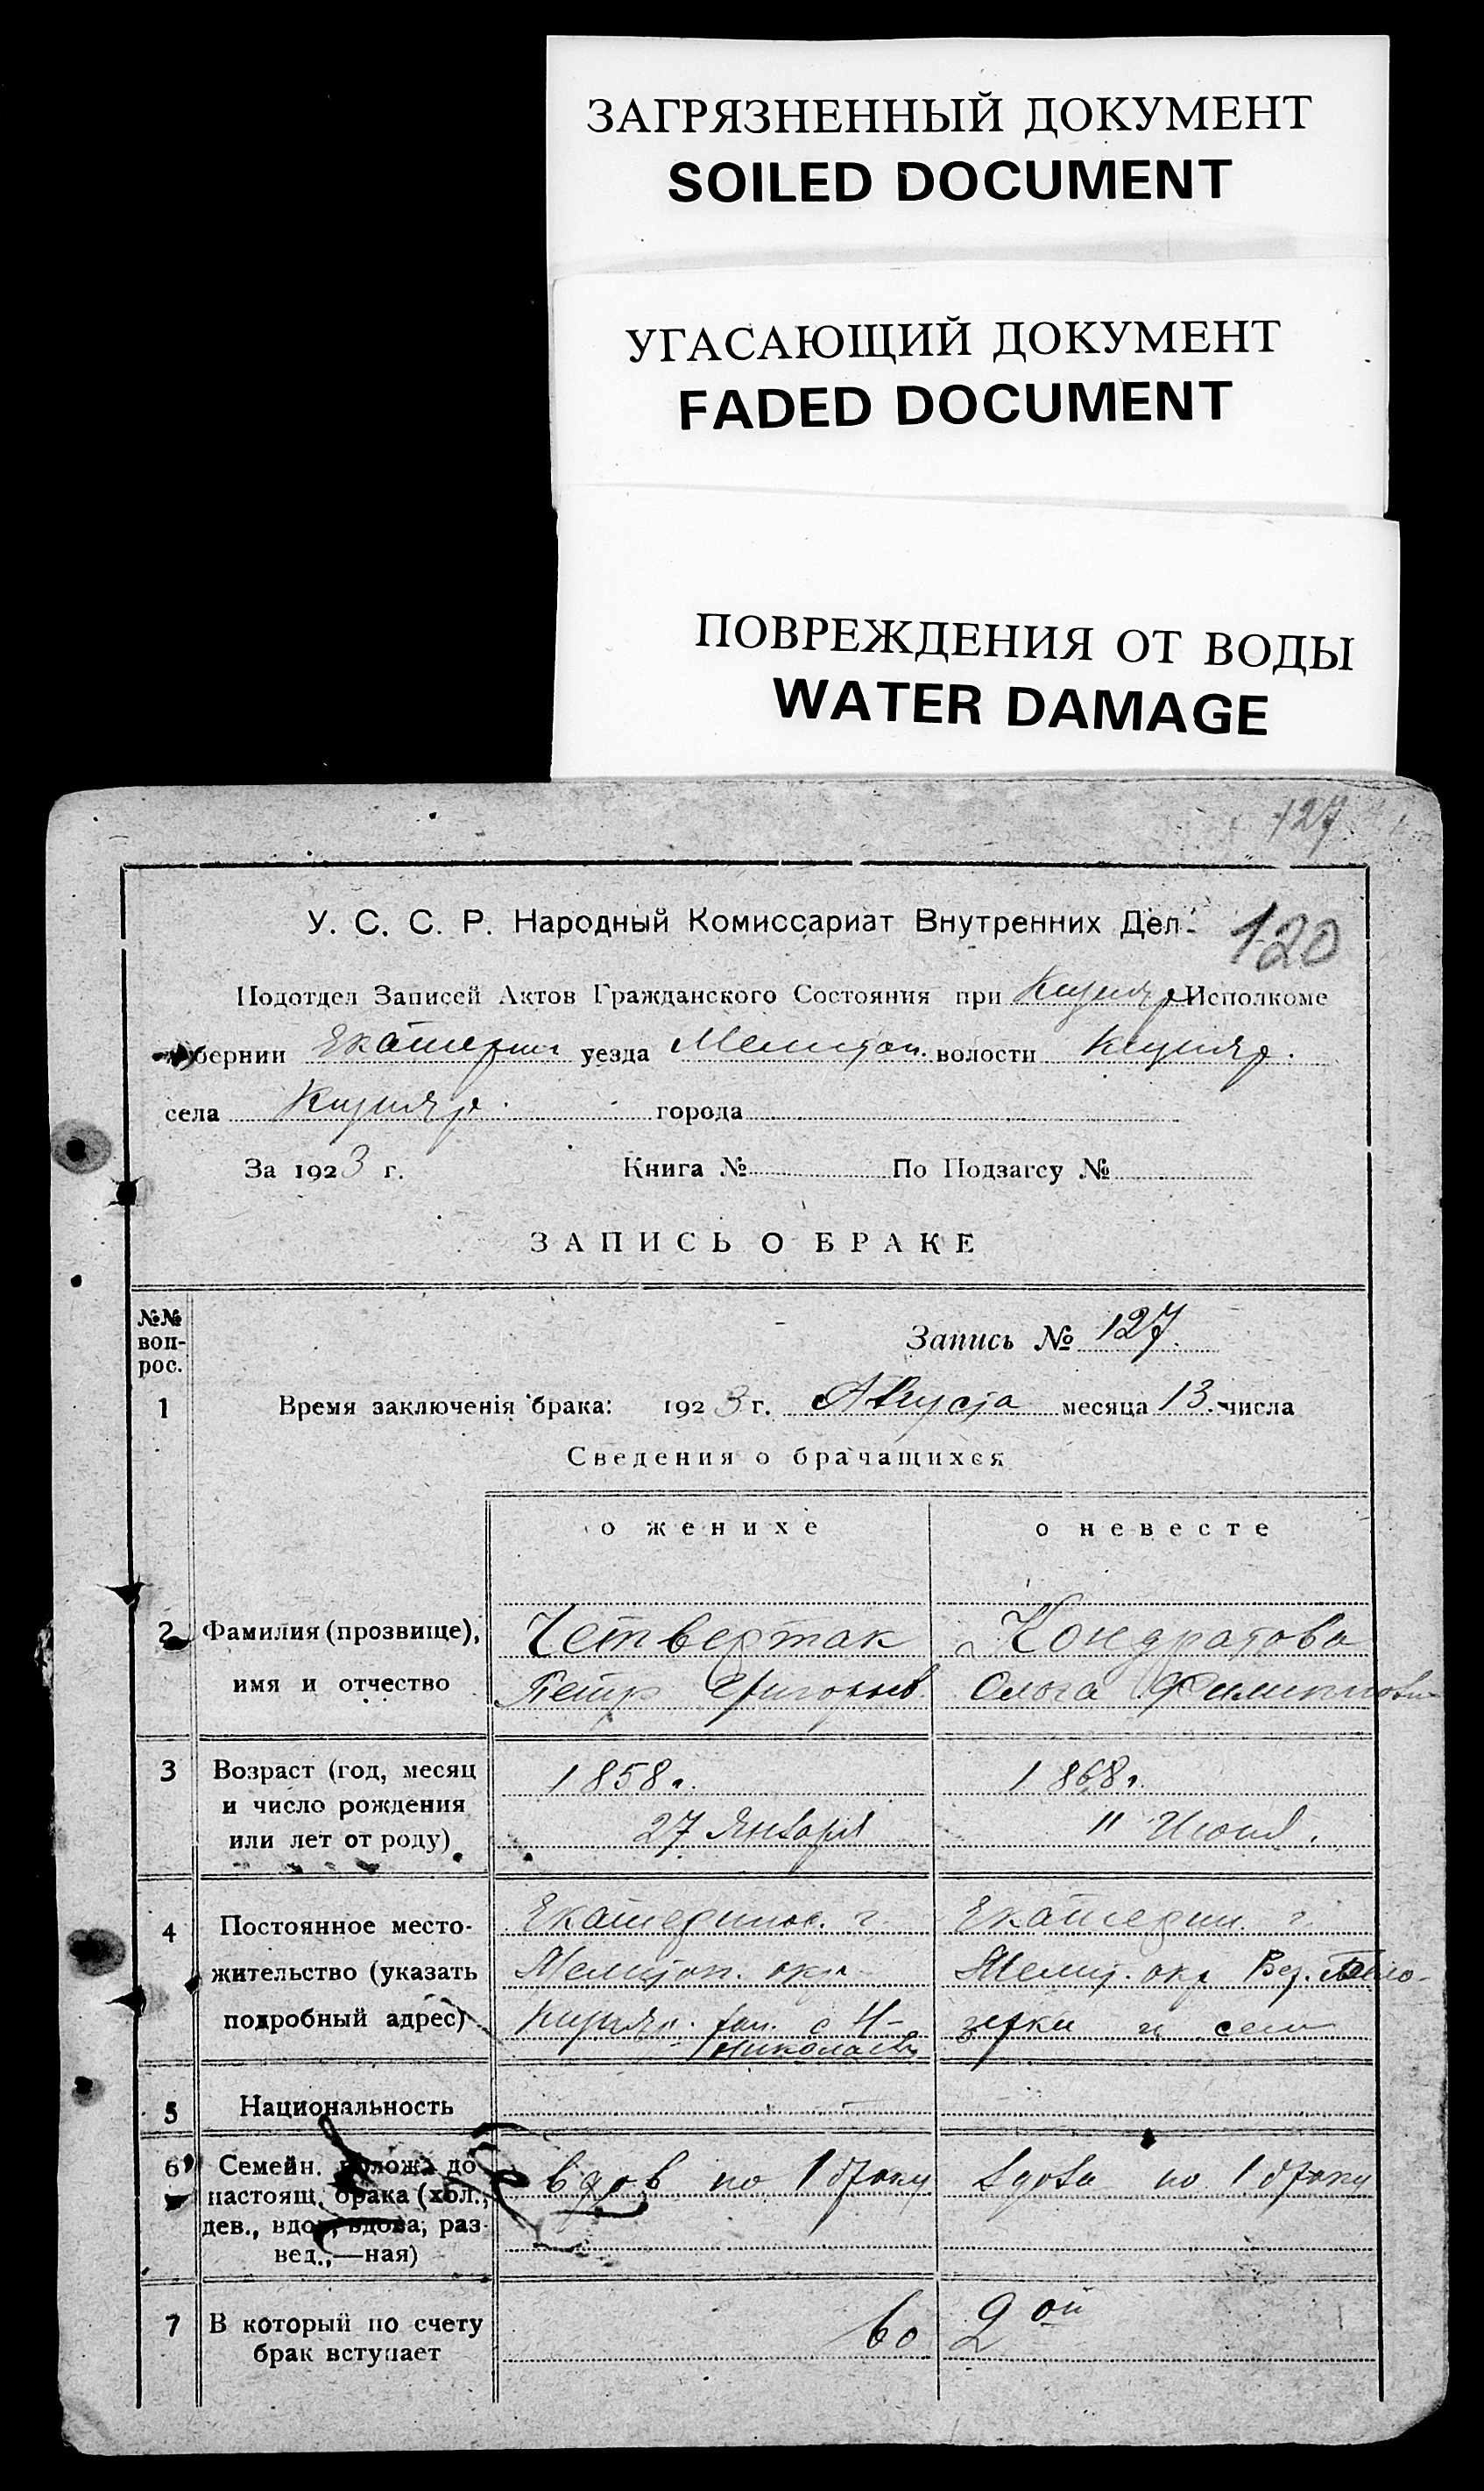 ЗАГРЯЗНЕННЫЙ ДОКУМЕНТ
SOILED DOCUMENT
УГАСАЮЩИЙ ДОКУМЕНТ
FADED DOCUMENT
ПОВРЕЖДЕНИЯ ОТ ВОДЫ
WATER DAMAGE
127
У. С. С. Р. Народный Комиссариат Внутренних Дел
120
Подотдел Записей Актов Гражданского Состояния при Исполкоме
бернии Екатерин уезда Мелитоп. волости
села города
За 1923 г. Книга № По Подзагсу №
ЗАПИСЬ О БРАКЕ
№№ воп-рос.
Запись № 127
1 Время заключенія брака: 1923 г. Августа месяца 13 числа
Сведения о брачащихся
о женихе о невесте
2 Фамилия (прозвище), Четвертак Кондратова
имя и отчество Петр Григорьев. Ольга Филиппов
3 Возраст (год, месяц 1858 г. 1868 г.
и число рождения 27 Января 11 Июня.
или лет от роду)
4 Постоянное место- Екатеринос. г. Екатерин. г.
жительство (указать Мелитоп. окр Мелит. окр
подробный адрес) с Н- зерки и села
Николаевка
5 Национальность
6 Семейн. полож. до вдов по 1 браку вдова по 1 браку
настоящ. брака (хол.,
дев., вдов, вдова, раз-
вед.,—ная)
7 В который по счету во 2ой
брак вступает